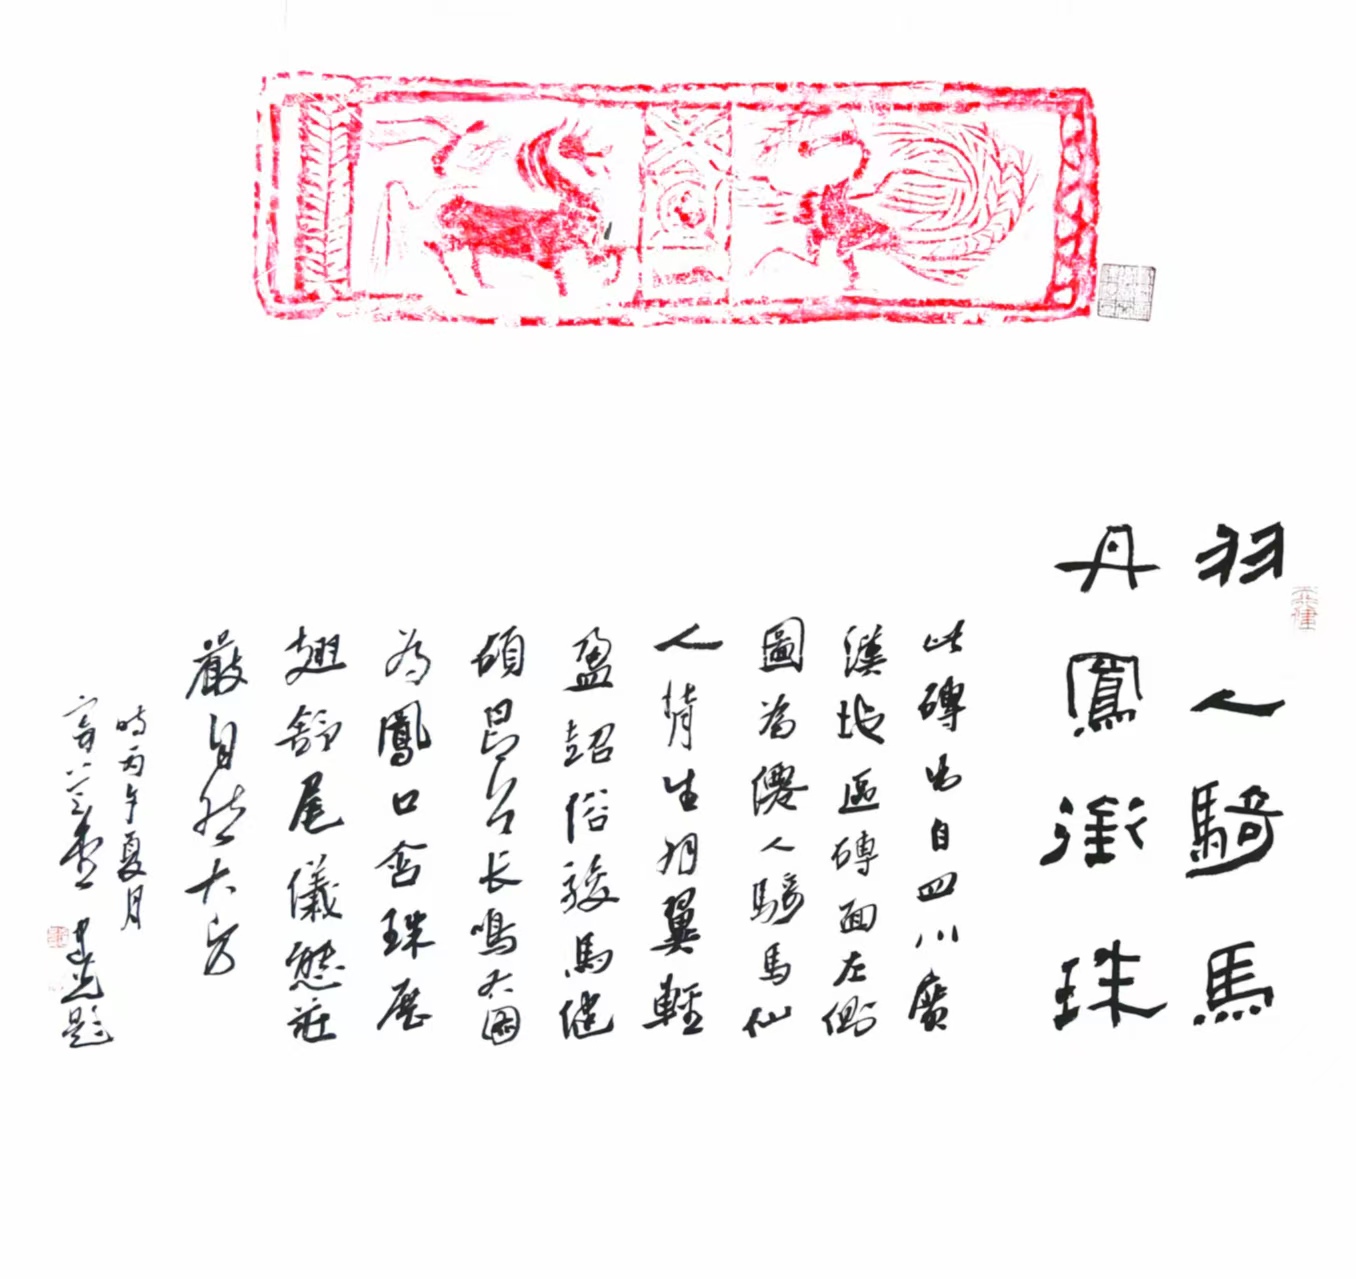 羽人騎馬
丹鳳銜珠
此磚出自四川廣
漢地區磚面左側
圖為僊人騎馬仙
人背生羽翼輕
盈超俗駿馬健
碩昂首长鳴右圖
為鳳口含珠展
翅舒尾儀態莊
嚴自然大方
時丙午夏月
題